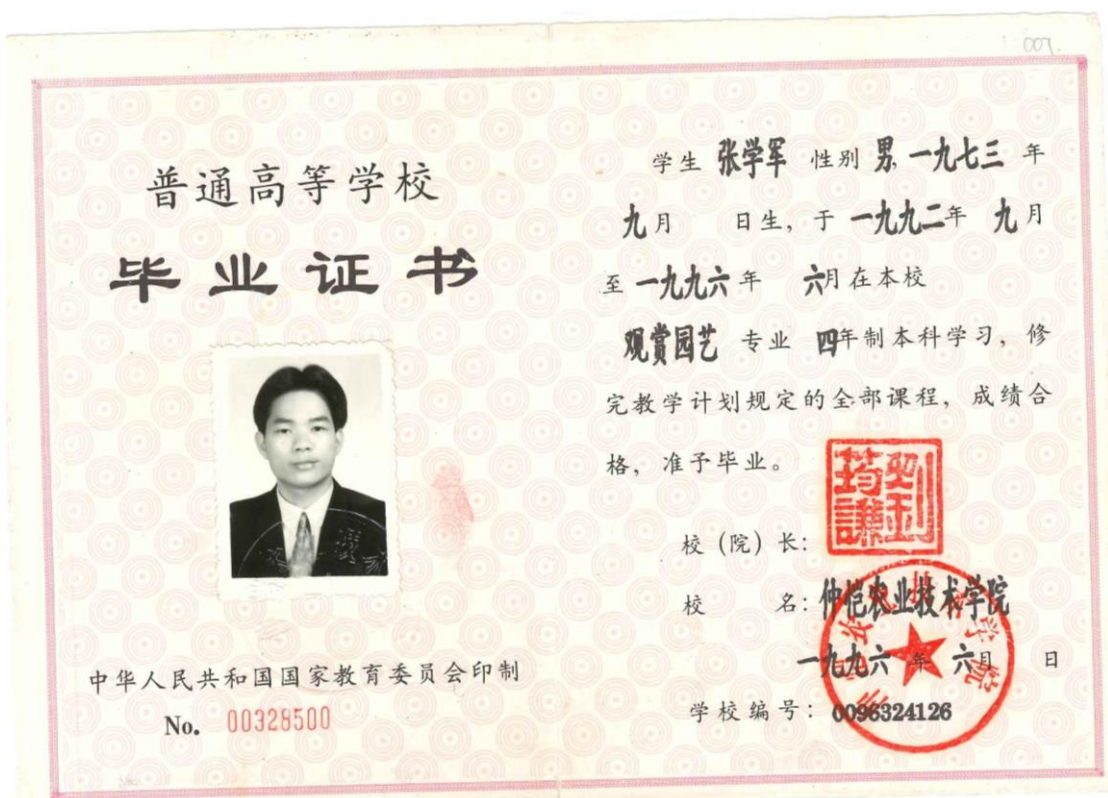 007
普通高等学校
毕业证书
中华人民共和国国家教育委员会印制
No. 00328500
学生 张学军 性别 男,一九七三 年
九月 日生，于 一九九二年 九月
至 一九九六 年 六月在本校
观赏园艺 专业 四年制本科学习，修
完教学计划规定的全部课程，成绩合
格，准予毕业。
校（院）长：
校 名：仲恺农业技术学院
一九九六 年 六月 日
学校编号：0096324126